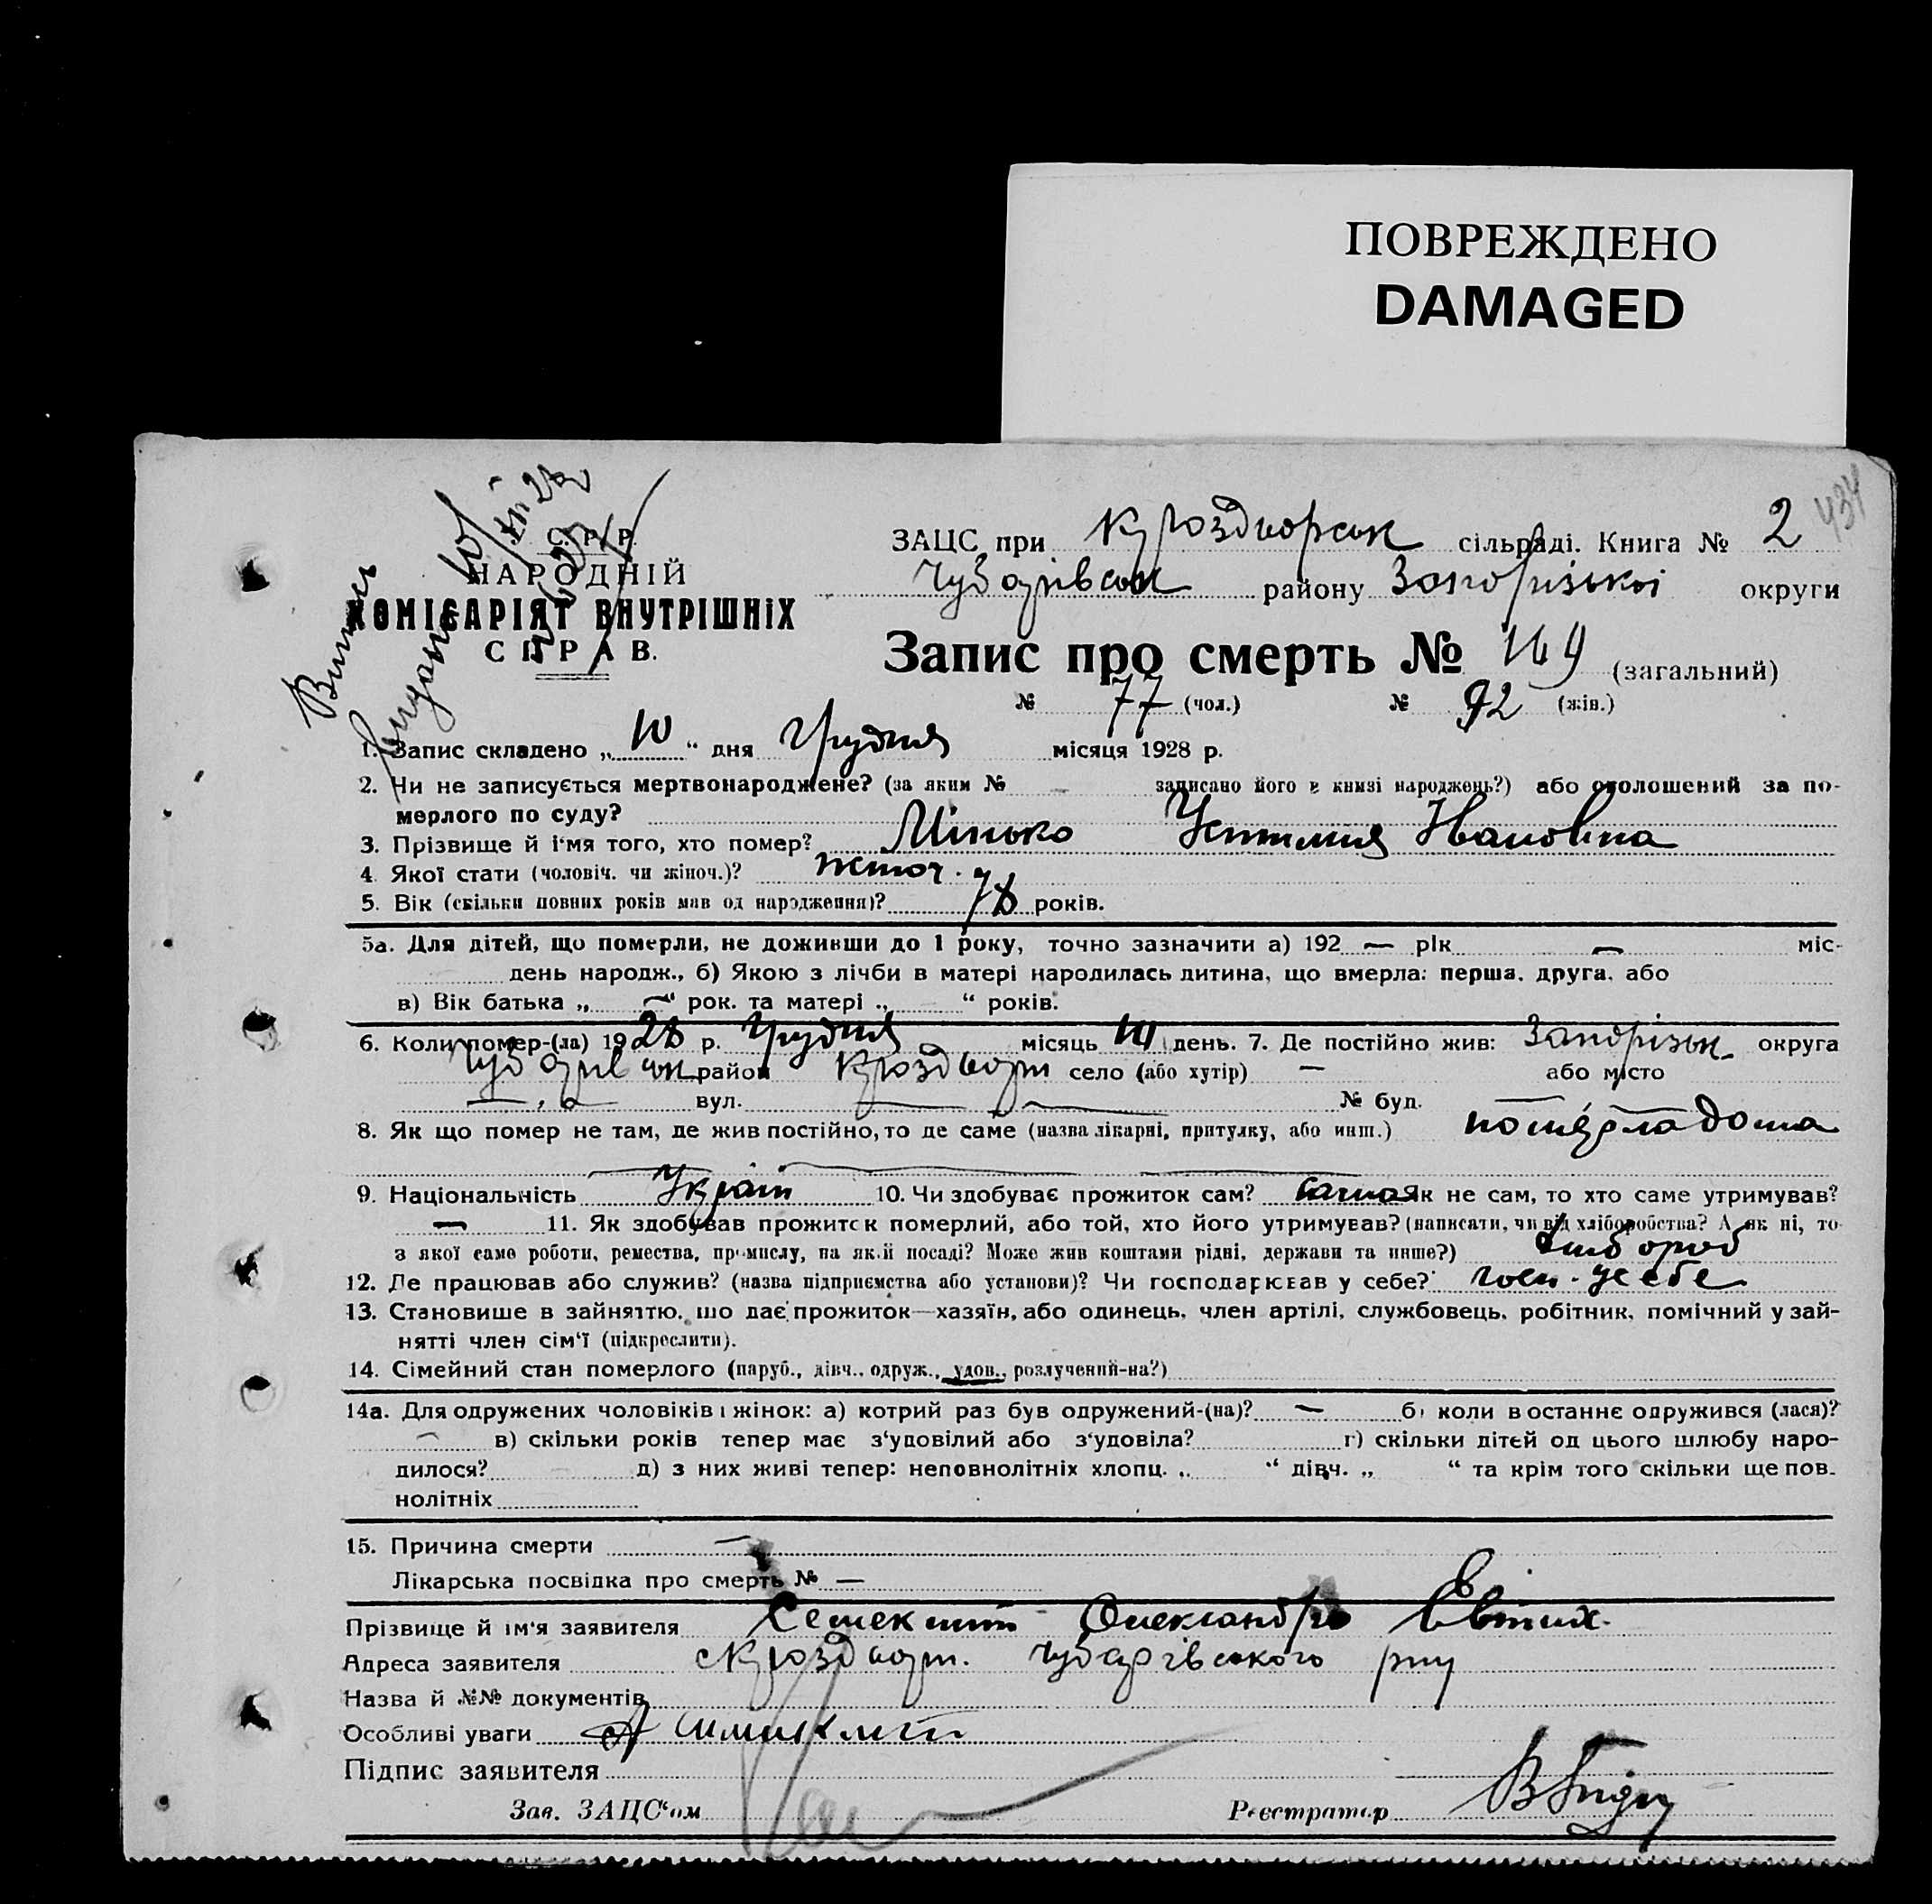 ПОВРЕЖДЕНО
DAMAGED
434
С. Р. Р.
НАРОДНІЙ
КОМІСАРІЯТ ВНУТРІШНІХ
СПРАВ.
Випис
ЗАЦС при сільраді. Книга № 2
Чубарівськ району Запорізької округи
Запис про смерть № 169 (загальний)
№ 77 (чол.) № 92 (жін.)
1. Запис складено „ 10 “ дня Грудня місяця 1928 р.
2. Чи не записується мертвонароджене? (за яким № — записано його в книзі народжень?) або оголошений за по-
мерлого по суду?
3. Прізвище й ім‘я того, хто помер? Мінько Устимия Ивановна
4. Якої стати (чоловіч. чи жіноч.)? жіноч.
5. Вік (скільки повних років мав од народження)? 78 років.
5а. Для дітей, що померли, не доживши до 1 року, точно зазначити а) 192 — рік — міс-
день народж., б) Якою з лічби в матері народилась дитина, що вмерла: перша, друга, або
в) Вік батька „ — “ рок. та матері „ “ років.
6. Коли помер-(ла) 1928 р. Грудня місяць 10 день. 7. Де постійно жив: Запорізьк округа
Чубарівськ район село (або хутір) — або місто
вул. № буд.
8. Як що помер не там, де жив постійно, то де саме (назва лікарні, притулку, або инш.) померла дома
9. Національність Україн 10. Чи здобуває прожиток сам? сама Як не сам, то хто саме утримував?
— 11. Як здобував прожиток померлий, або той, хто його утримував? (написати, чи від хліборобства? А як ні, то
з якої саме роботи, ремества, промислу, на якій посаді? Може жив коштами рідні, держави та инше?) хлібороб
12. Де працював або служив? (назва підприємства або установи)? Чи господарював у себе? госп. у себе
13. Становище в зайняттю, що дає прожиток—хазяїн, або одинець, член артілі, службовець, робітник, помічний у зай-
нятті член сім‘ї (підкреслити).
14. Сімейний стан померлого (паруб., дівч., одруж., удов., розлучений-на?)
14а. Для одружених чоловіків і жінок: а) котрий раз був одружений-(на)? — б) коли востаннє одружився (лася)?
— в) скільки років тепер має з‘удовілий або з‘удовіла? г) скільки дітей од цього шлюбу наро-
дилося? д) з них живі тепер: неповнолітніх хлопц. „ “ дівч. „ “ та крім того скільки ще пов-
нолітніх
15. Причина смерти —
Лікарська посвідка про смерть № —
Прізвище й ім‘я заявителя Семекліт Олександра Евтих.
Адреса заявителя Чубарівського р-ну
Назва й №№ документів
Особливі уваги
Підпис заявителя
Зав. ЗАЦС‘ом
Реєстратор